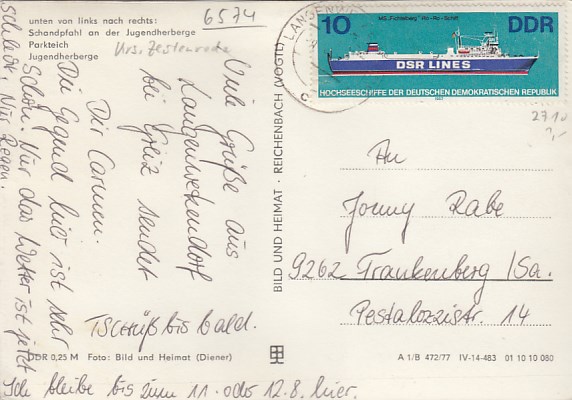 unten von links nach rechts:
Schandpfahl an der Jugendherberge
Parkteich
Jugendherberge
6574
Krs. Zeulenroda
Viele Grüße aus
Langenwetzendorf
bei Greiz sendet
Dir Carmen.
Die Gegend hier ist sehr
schön. Nur das Wetter ist jetzt
schlecht. Nur Regen.
TSCHÜß bis bald.
Ich bleibe bis zum 11. oder 12.8. hier.
DDR 0,25 M Foto: Bild und Heimat (Diener)
BILD UND HEIMAT · REICHENBACH (VOGTL)
LANGENWET
10
MS „Fichtelberg“ Ro-Ro-Schiff
DDR
DSR LINES
HOCHSEESCHIFFE DER DEUTSCHEN DEMOKRATISCHEN REPUBLIK
1982
2710
An
Jonny Rabe
9262 Frankenberg/Sa.
Pestalozzistr. 14
A 1/B 472/77 IV-14-483 01 10 10 080